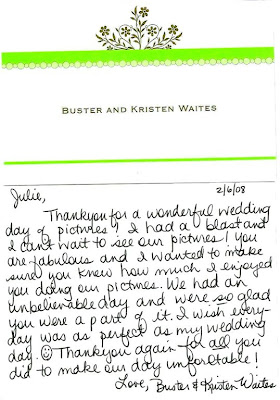 BUSTER AND KRISTEN WAITES
Julie, 2/6/08
Thankyou for a wonderful wedding
day of pictures! I had a blast and
I can't wait to see our pictures! You
are fabulous and I wanted to make
sure you knew how much I enjoyed
you doing our pictures. We had an
unbelievable day and were so glad
you were a part of it. I wish every-
day was as perfect as my wedding
day. ☺ Thankyou again for all you
did to make our day unforgettable!
Love, Buster & Kristen Waites